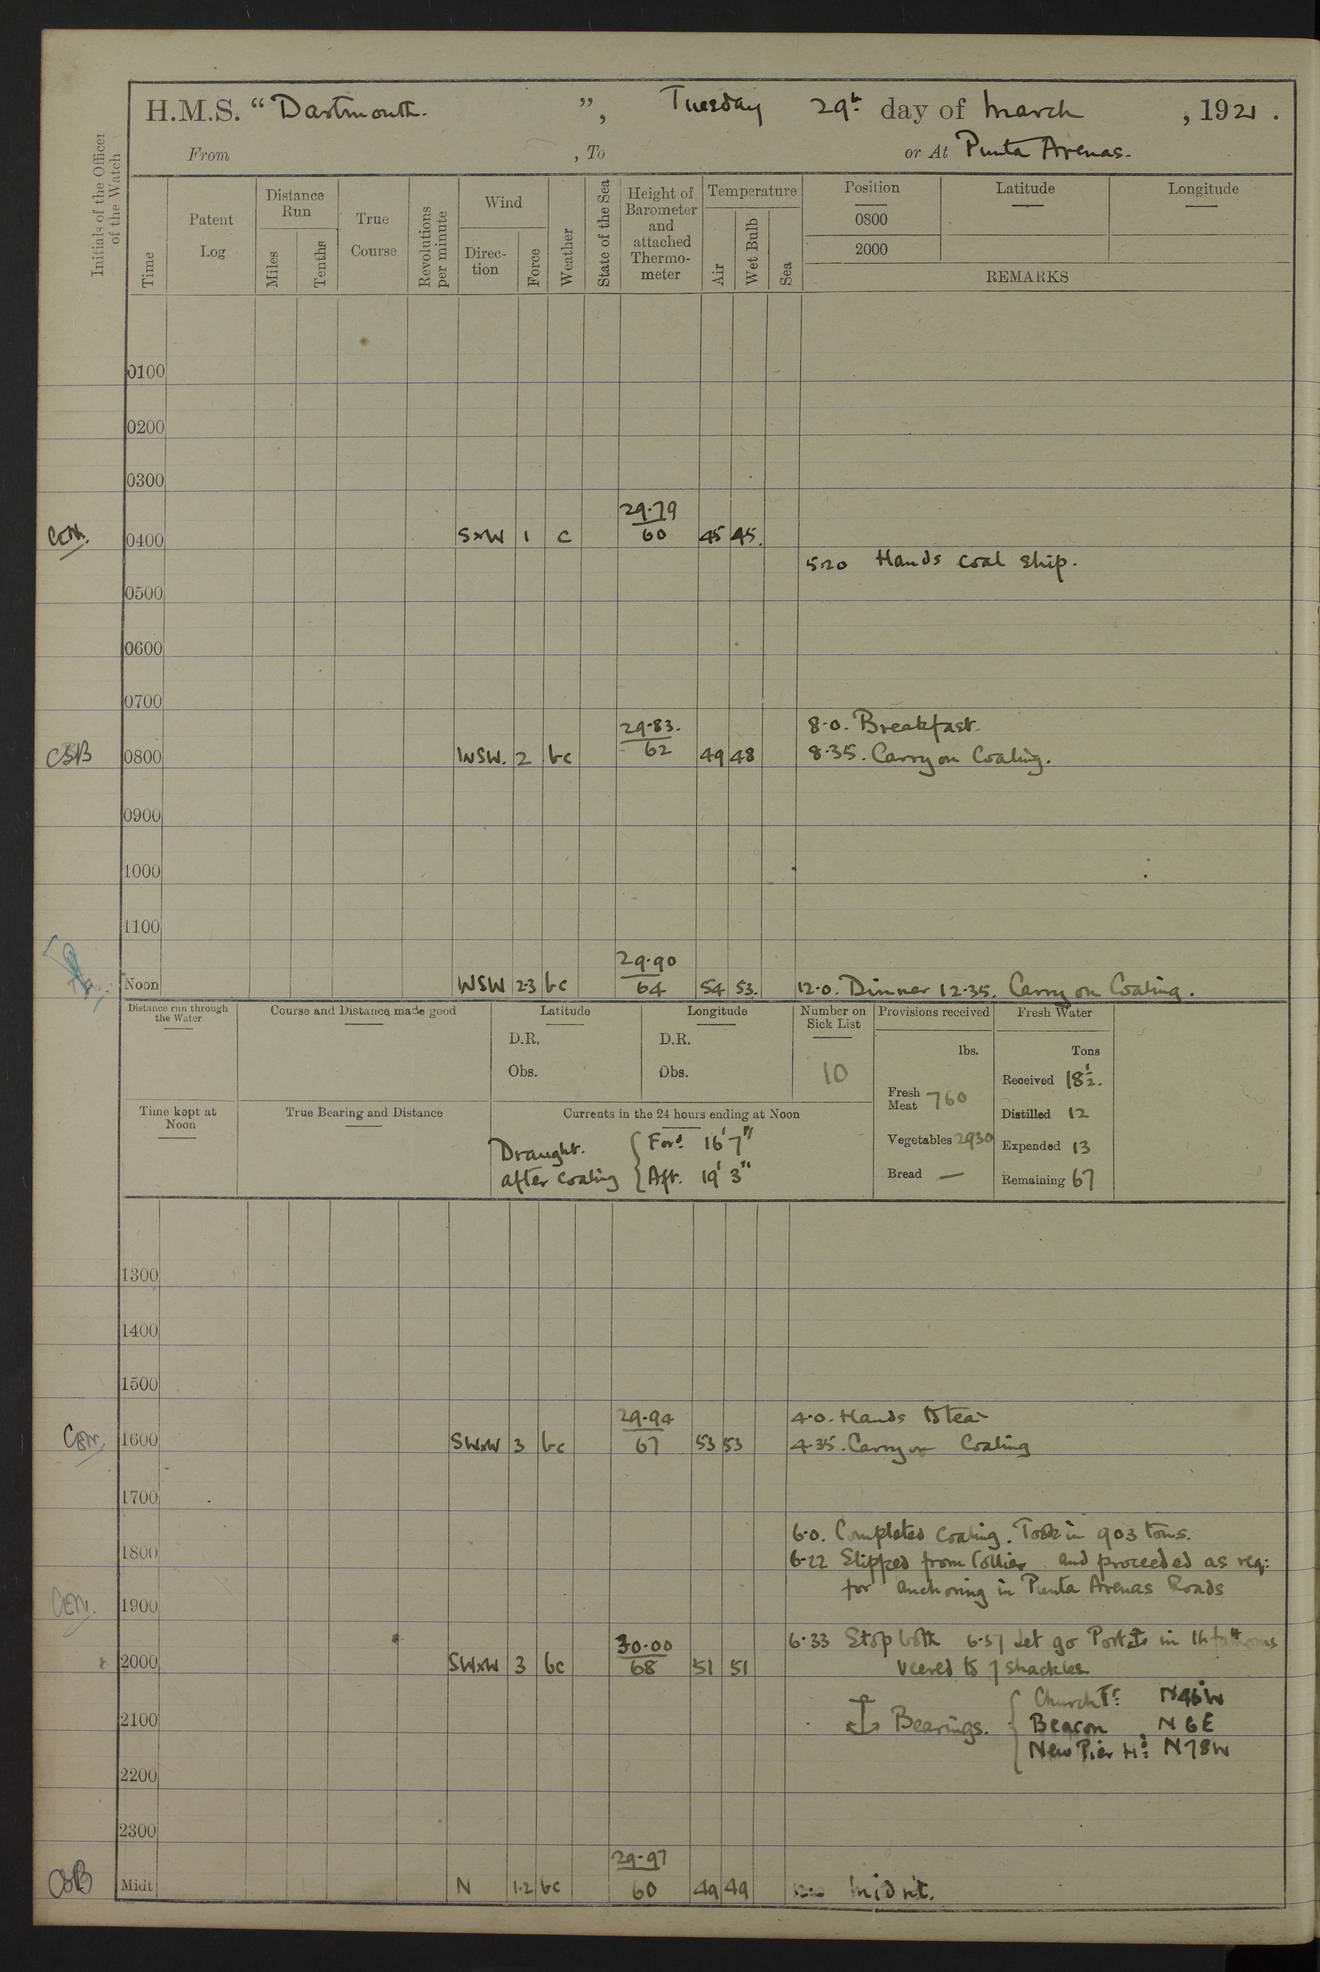 H.M.S. "Dartmouth.", Tuesday 29th day of March, 1921.
From , To or At Punta Arenas.
Initials of the Officer of the Watch
Time
Patent Log
Distance Run
Miles
Tenths
True Course
Revolutions per minute
Wind
Direction
Force
Weather
State of the Sea
Height of Barometer and attached Thermometer
Temperature
Air
Wet Bulb
Sea
Position Latitude Longitude
0800
2000
REMARKS
0100
0200
0300
0400 SxW 1 c 29.79 60 45 45.
5.20 Hands coal ship.
0500
0600
0700
8.0. Breakfast.
CSB 0800 WSW. 2 bc 29.83. 62 49 48 8.35. Carry on Coaling.
0900
1000
1100
Noon WSW 2-3 bc 29.90 64 54 53. 12.0. Dinner 12.35. Carry on Coaling.
Distance run through the Water
Course and Distance made good
Latitude
D.R.
Obs.
Longitude
D.R.
Obs.
Number on Sick List
10
Provisions received
lbs.
Fresh Meat 760
Vegetables 2930
Bread —
Fresh Water
Tons
Received 18½.
Distilled 12
Expended 13
Remaining 67
Time kept at Noon
True Bearing and Distance
Currents in the 24 hours ending at Noon
Draught. after coaling { Ford 16' 7"
Aft. 19' 3"
1300
1400
1500
4.0. Hands to tea
1600 SWxW 3 bc 29.94 67 53 53 4.35. Carry on Coaling
1700
6.0. Completed coaling. Took in 903 tons.
1800 6.22 Slipped from Collier and proceeded as req:
for anchoring in Punta Arenas Roads
CEN. 1900
6.33 Stop both 6.37 Let go Port ⚓ in fathoms
2000 SWxW 3 bc 30.00 68 51 51 veered to 7 shackles
⚓ Bearings. { Church Tr: N46W
2100 Beacon N6E
New Pier Hd: N78W
2200
2300
Midt N 1-2 bc 29.97 60 49 49 Midnt.